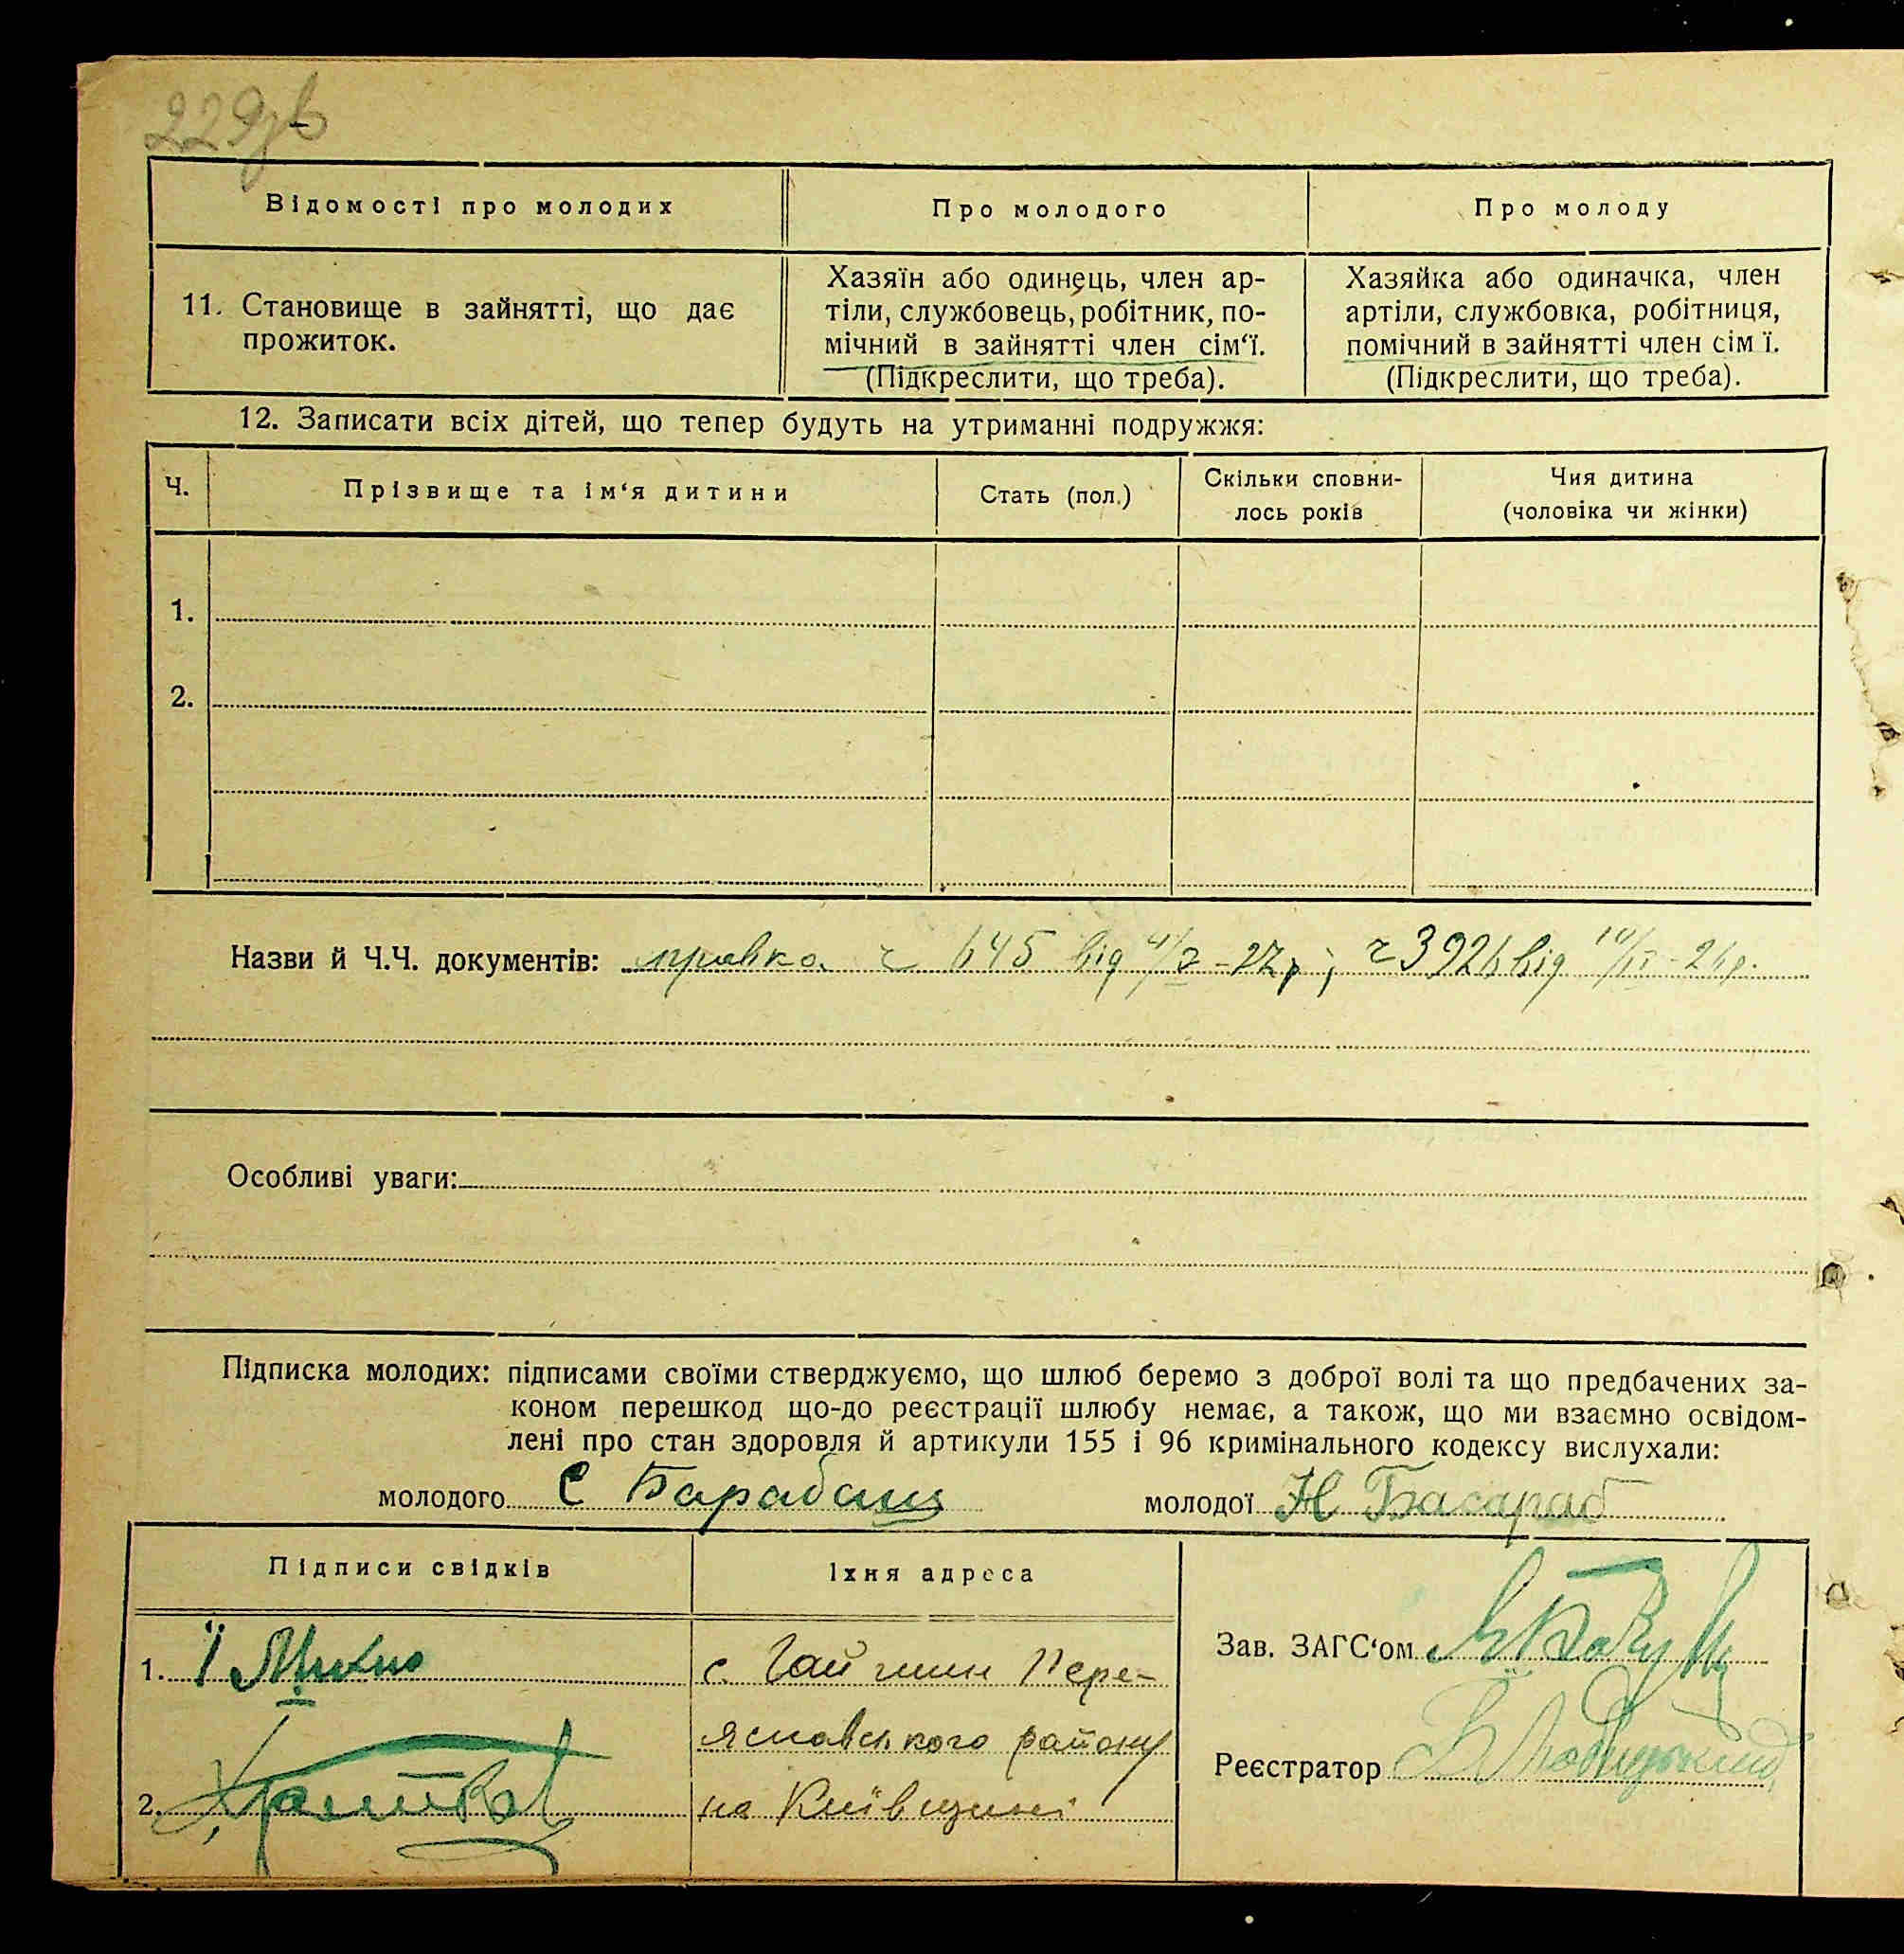 229зв
Відомості про молодих
Про молодого
Про молоду
11. Становище в зайнятті, що дає
прожиток.
Хазяїн або одинець, член ар-
тіли, службовець, робітник, по-
мічний в зайнятті член сім‘ї.
(Підкреслити, що треба).
Хазяйка або одиначка, член
артіли, службовка, робітниця,
помічний в зайнятті член сім ї.
(Підкреслити, що треба).
12. Записати всіх дітей, що тепер будуть на утриманні подружжя:
Ч.
Прізвище та ім‘я дитини
Стать (пол.)
Скільки сповни-
лось років
Чия дитина
(чоловіка чи жінки)
1.
2.
Назви й Ч.Ч. документів: ч 645 від - 27р; ч 3926 від - 26р.
Особливі уваги:
Підписка молодих: підписами своїми стверджуємо, що шлюб беремо з доброї волі та що предбачених за-
коном перешкод що-до реєстрації шлюбу немає, а також, що ми взаємно освідом-
лені про стан здоровля й артикули 155 і 96 кримінального кодексу вислухали:
молодого С Барабаш молодої Н Басараб
Підписи свідків
Їхня адреса
1.
с. Гайшин Пере-
яславського району
2.
на Київщині
Зав. ЗАГС‘ом
Реєстратор